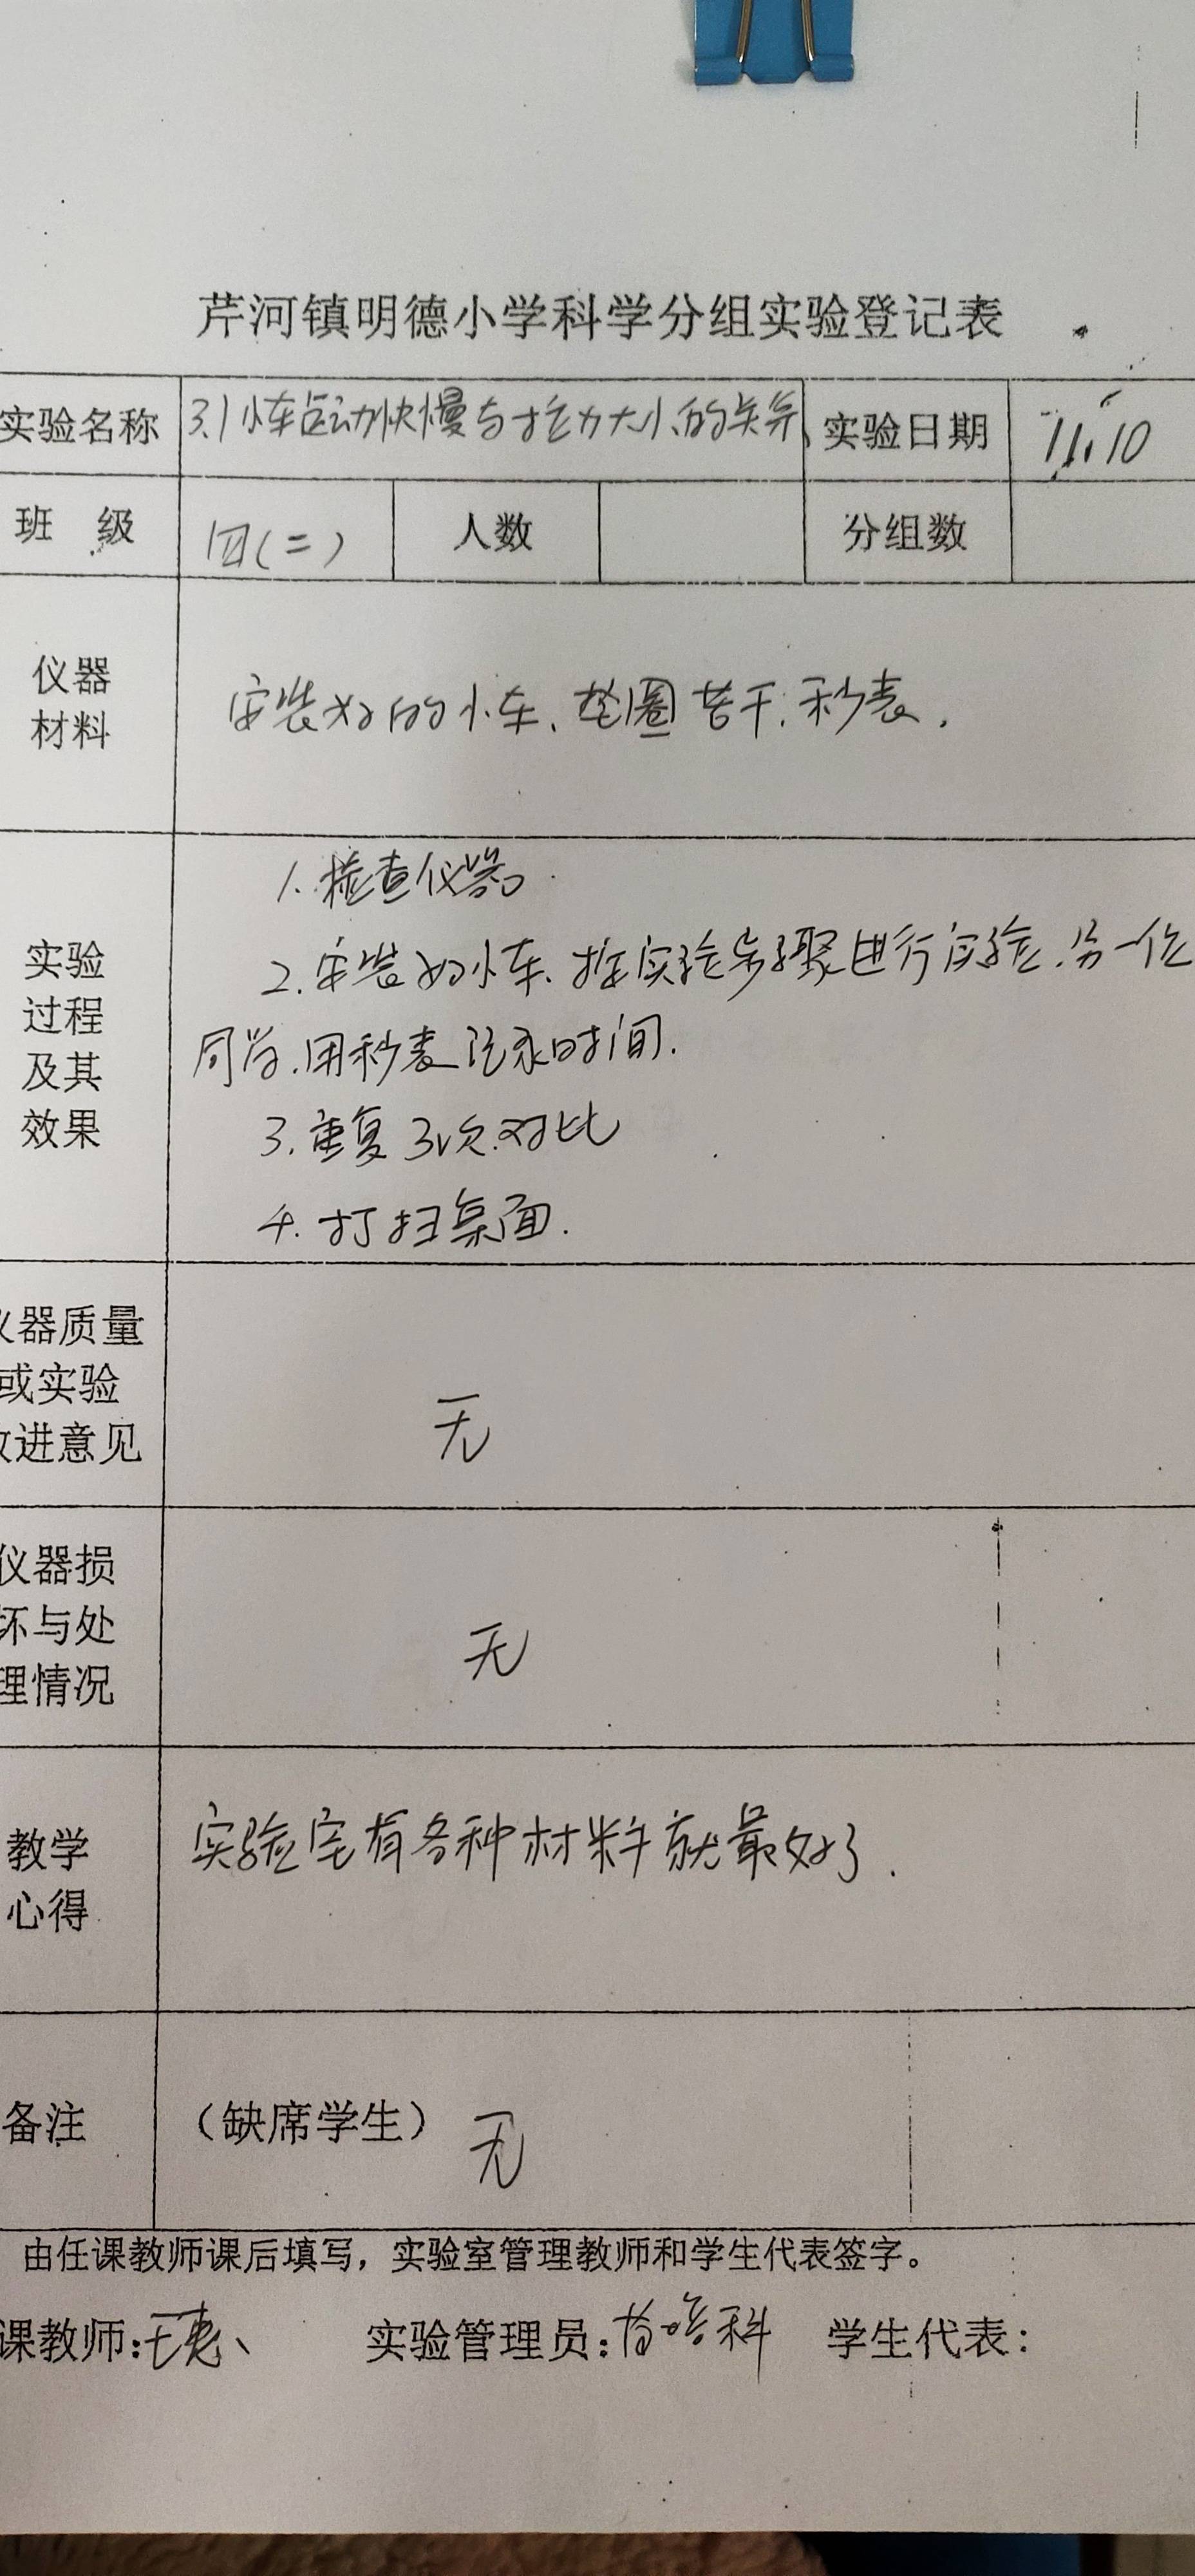 芹河镇明德小学科学分组实验登记表
实验名称 3.1 小车运动快慢与拉力大小的关系 实验日期 11.10
班 级 四(二) 人数 分组数
仪器
材料
安装好的小车、垫圈若干、秒表.
实验
过程
及其
效果
1. 检查仪器
2. 安装好小车、按实验步骤进行实验.另一位
同学.用秒表记录时间.
3. 重复3次.对比
4. 打扫桌面.
仪器质量
或实验
改进意见
无
仪器损
坏与处
理情况
无
教学
心得
实验室有各种材料就最好了.
备注 (缺席学生) 无
由任课教师课后填写，实验室管理教师和学生代表签字。
课教师: 实验管理员: 学生代表: